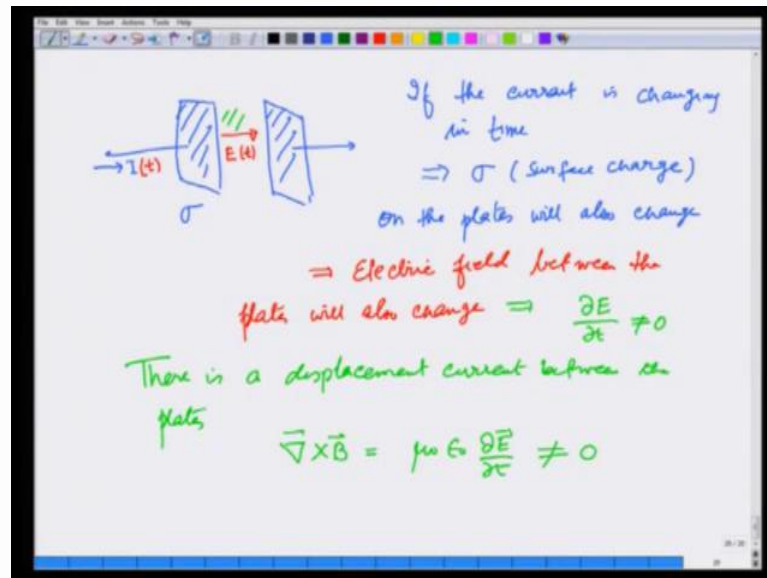 File Edit View Insert Actions Tools Help
If the current is changing
in time
I(t)
E(t)
σ
⇒ σ (surface charge)
on the plates will also change
⇒ Electric field between the
plates will also change ⇒ ∂E/∂t ≠ 0
There is a displacement current between the
plates
∇⃗ × B⃗ = μ₀ ε₀ ∂E⃗/∂t ≠ 0